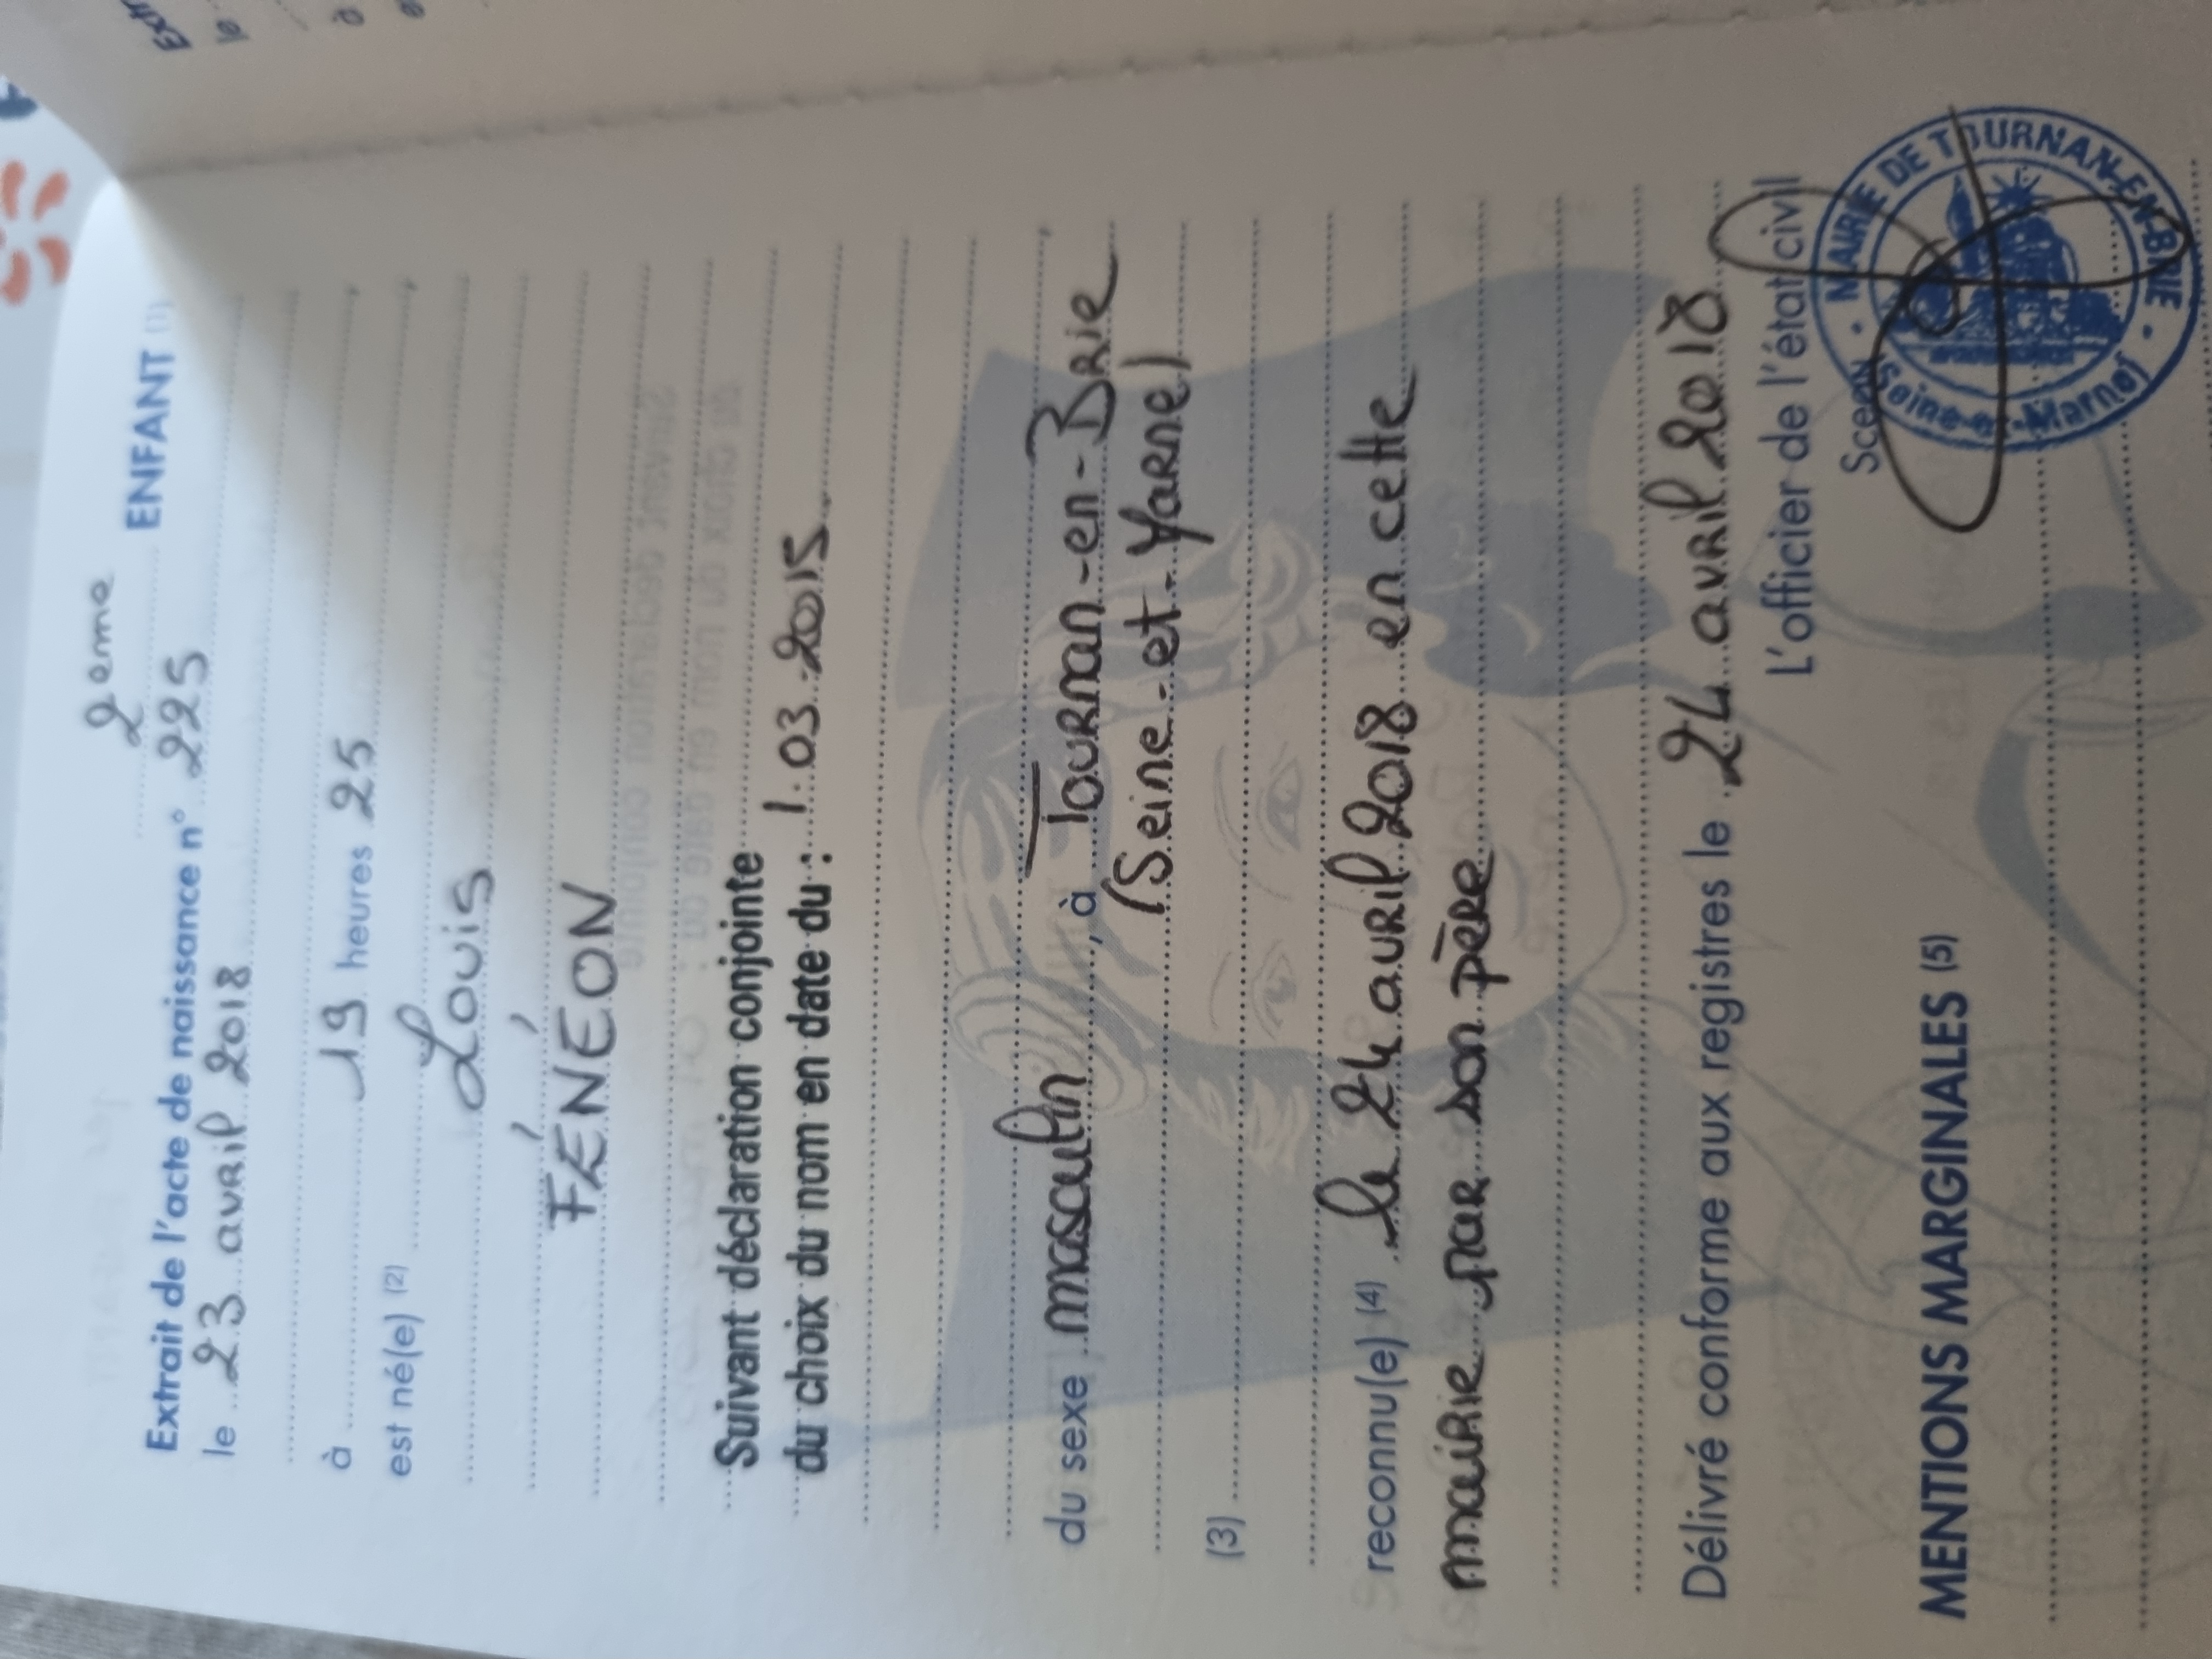 2eme
ENFANT (1)
Extrait de l'acte de naissance n° 225
le 23 avril 2018
à 19 heures 25
est né(e) (2)
Louis
FÉNÉON
Suivant déclaration conjointe
du choix du nom en date du : 1.03.2015
du sexe masculin, à Tournan-en-Brie
(Seine-et-Marne)
(3)
reconnu(e) (4) le 24 avril 2018 en cette
mairie par son père
Délivré conforme aux registres le 24 avril 2018
L'officier de l'état civil
Sceau
MAIRIE DE TOURNAN-EN-BRIE
(Seine-et-Marne)
MENTIONS MARGINALES (5)
Extr
le
à
e